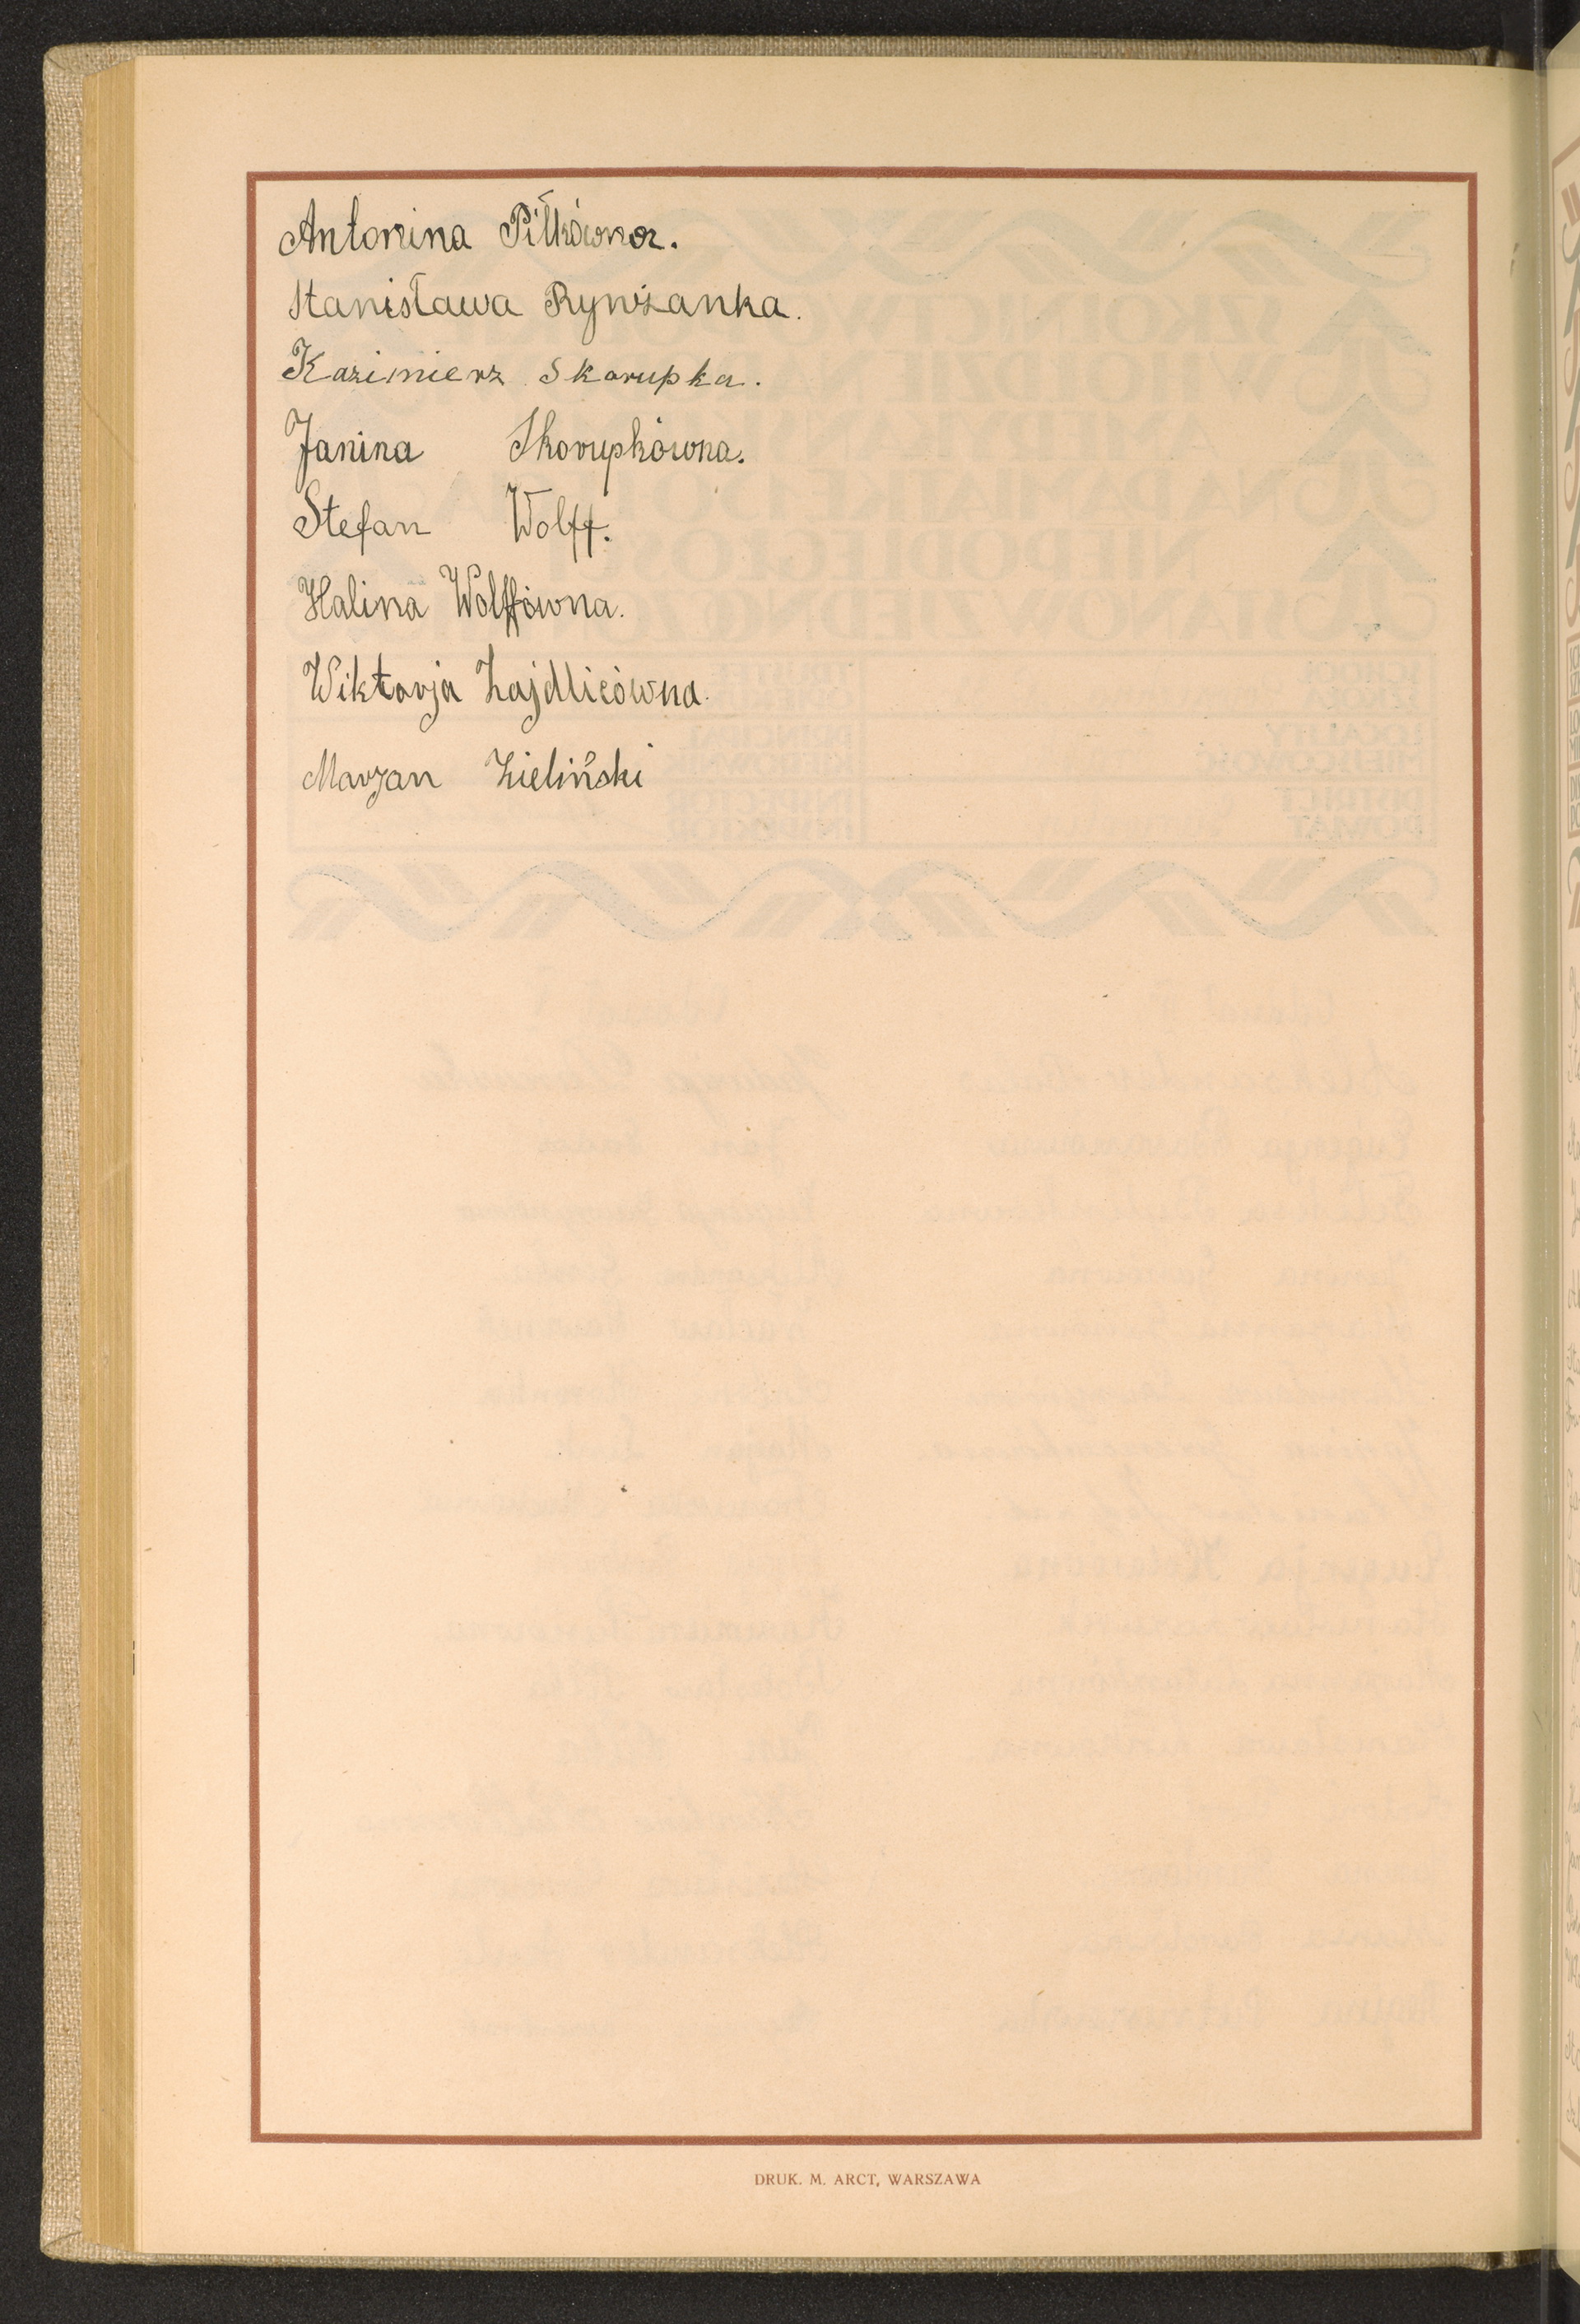 Antonina Piłkówna.
Stanisława Rynżanka.
Kazimierz Skorupka.
Janina Skorupkówna.
Stefan Wolff.
Halina Wolffówna.
Wiktorja Zajdlicówna.
Marjan Zieliński
DRUK. M. ARCT, WARSZAWA